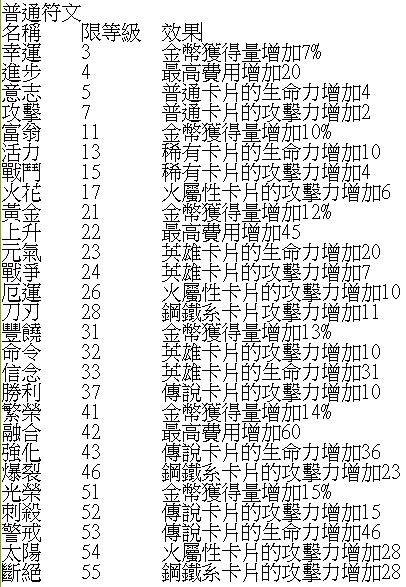 普通符文
名稱 限等級 效果
幸運 3 金幣獲得量增加7%
進步 4 最高費用增加20
意志 5 普通卡片的生命力增加4
攻擊 7 普通卡片的攻擊力增加2
富翁 11 金幣獲得量增加10%
活力 13 稀有卡片的生命力增加10
戰鬥 15 稀有卡片的攻擊力增加4
火花 17 火屬性卡片的攻擊力增加6
黃金 21 金幣獲得量增加12%
上升 22 最高費用增加45
元氣 23 英雄卡片的生命力增加20
戰爭 24 英雄卡片的攻擊力增加7
厄運 26 火屬性卡片的攻擊力增加10
刀刃 28 鋼鐵系卡片攻擊力增加11
豐饒 31 金幣獲得量增加13%
命令 32 英雄卡片的攻擊力增加10
信念 33 英雄卡片的生命力增加31
勝利 37 傳說卡片的攻擊力增加10
繁榮 41 金幣獲得量增加14%
融合 42 最高費用增加60
強化 43 傳說卡片的生命力增加36
爆裂 46 鋼鐵系卡片的攻擊力增加23
光榮 51 金幣獲得量增加15%
刺殺 52 傳說卡片的攻擊力增加15
警戒 53 傳說卡片的生命力增加46
太陽 54 火屬性卡片的攻擊力增加28
斷絕 55 鋼鐵系卡片的攻擊力增加28